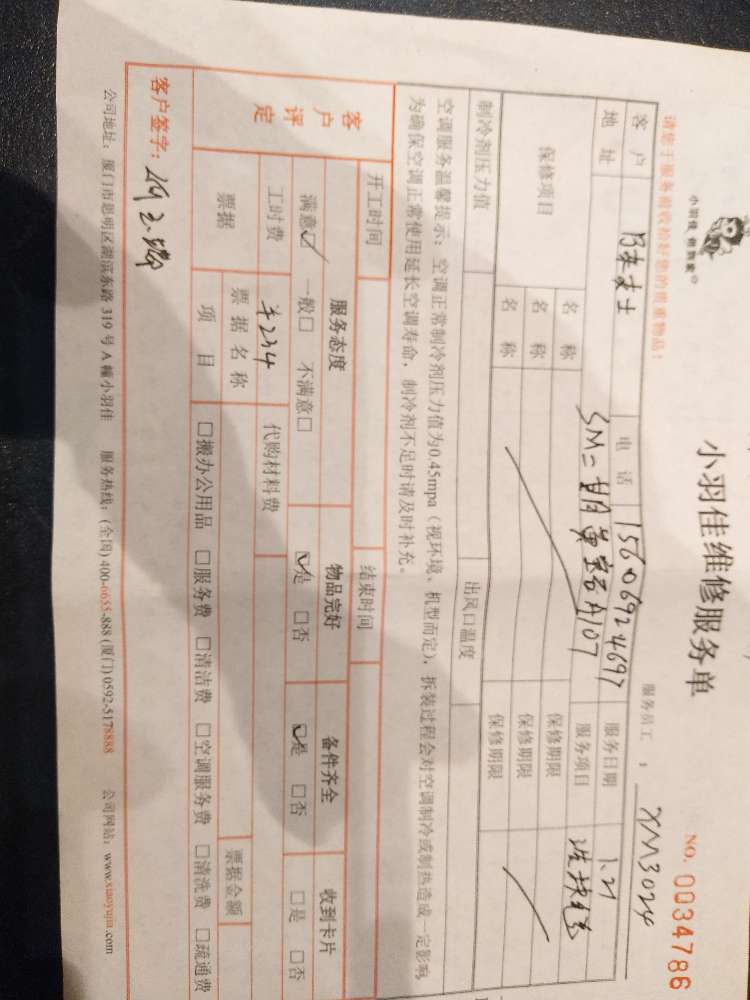 小羽佳 帮到家®
小羽佳维修服务单
NO. 0034786
请您于服务前收拾好您的贵重物品!
服务员工 : XM3024
客户 女士 电话 15606924697 服务日期 1.21
地址 SM二 A107 服务项目
保修项目 名称 保修期限
名称 保修期限
名称 保修期限
制冷剂压力值 出风口温度
空调服务温馨提示:空调正常制冷剂压力值为0.45mpa(视环境、机型而定),拆装过程会对空调制冷或制热造成一定影响,
为确保空调正常使用延长空调寿命,制冷剂不足时请及时补充。
开工时间 结束时间
客户评定 服务态度 物品完好 备件齐全 收到卡片
满意☑ 一般□ 不满意□ ☑是 □否 ☑是 □否 □是 □否
工时费 ¥234 代购材料费
票据 票据名称 票据金额
项目 □搬办公用品 □服务费 □清洁费 □空调服务费 □清洗费 □疏通费
客户签字:
公司地址:厦门市思明区湖滨东路 319 号 A 幢小羽佳 服务热线:(全国) 400-0655-888 (厦门) 0592-5178888 公司网站:www.xiaoyujia.com